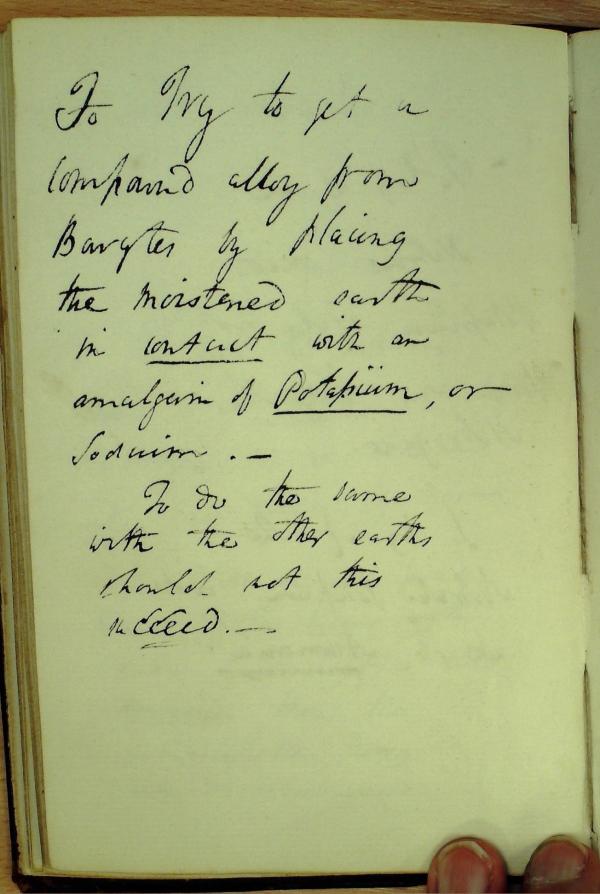 To Try to get a
compound alloy from
Barytes by placing
the moistened earth
in contact with an
amalgam of Potassium, or
Sodium. —
To do the same
with the other earths
should not this
succeed. —